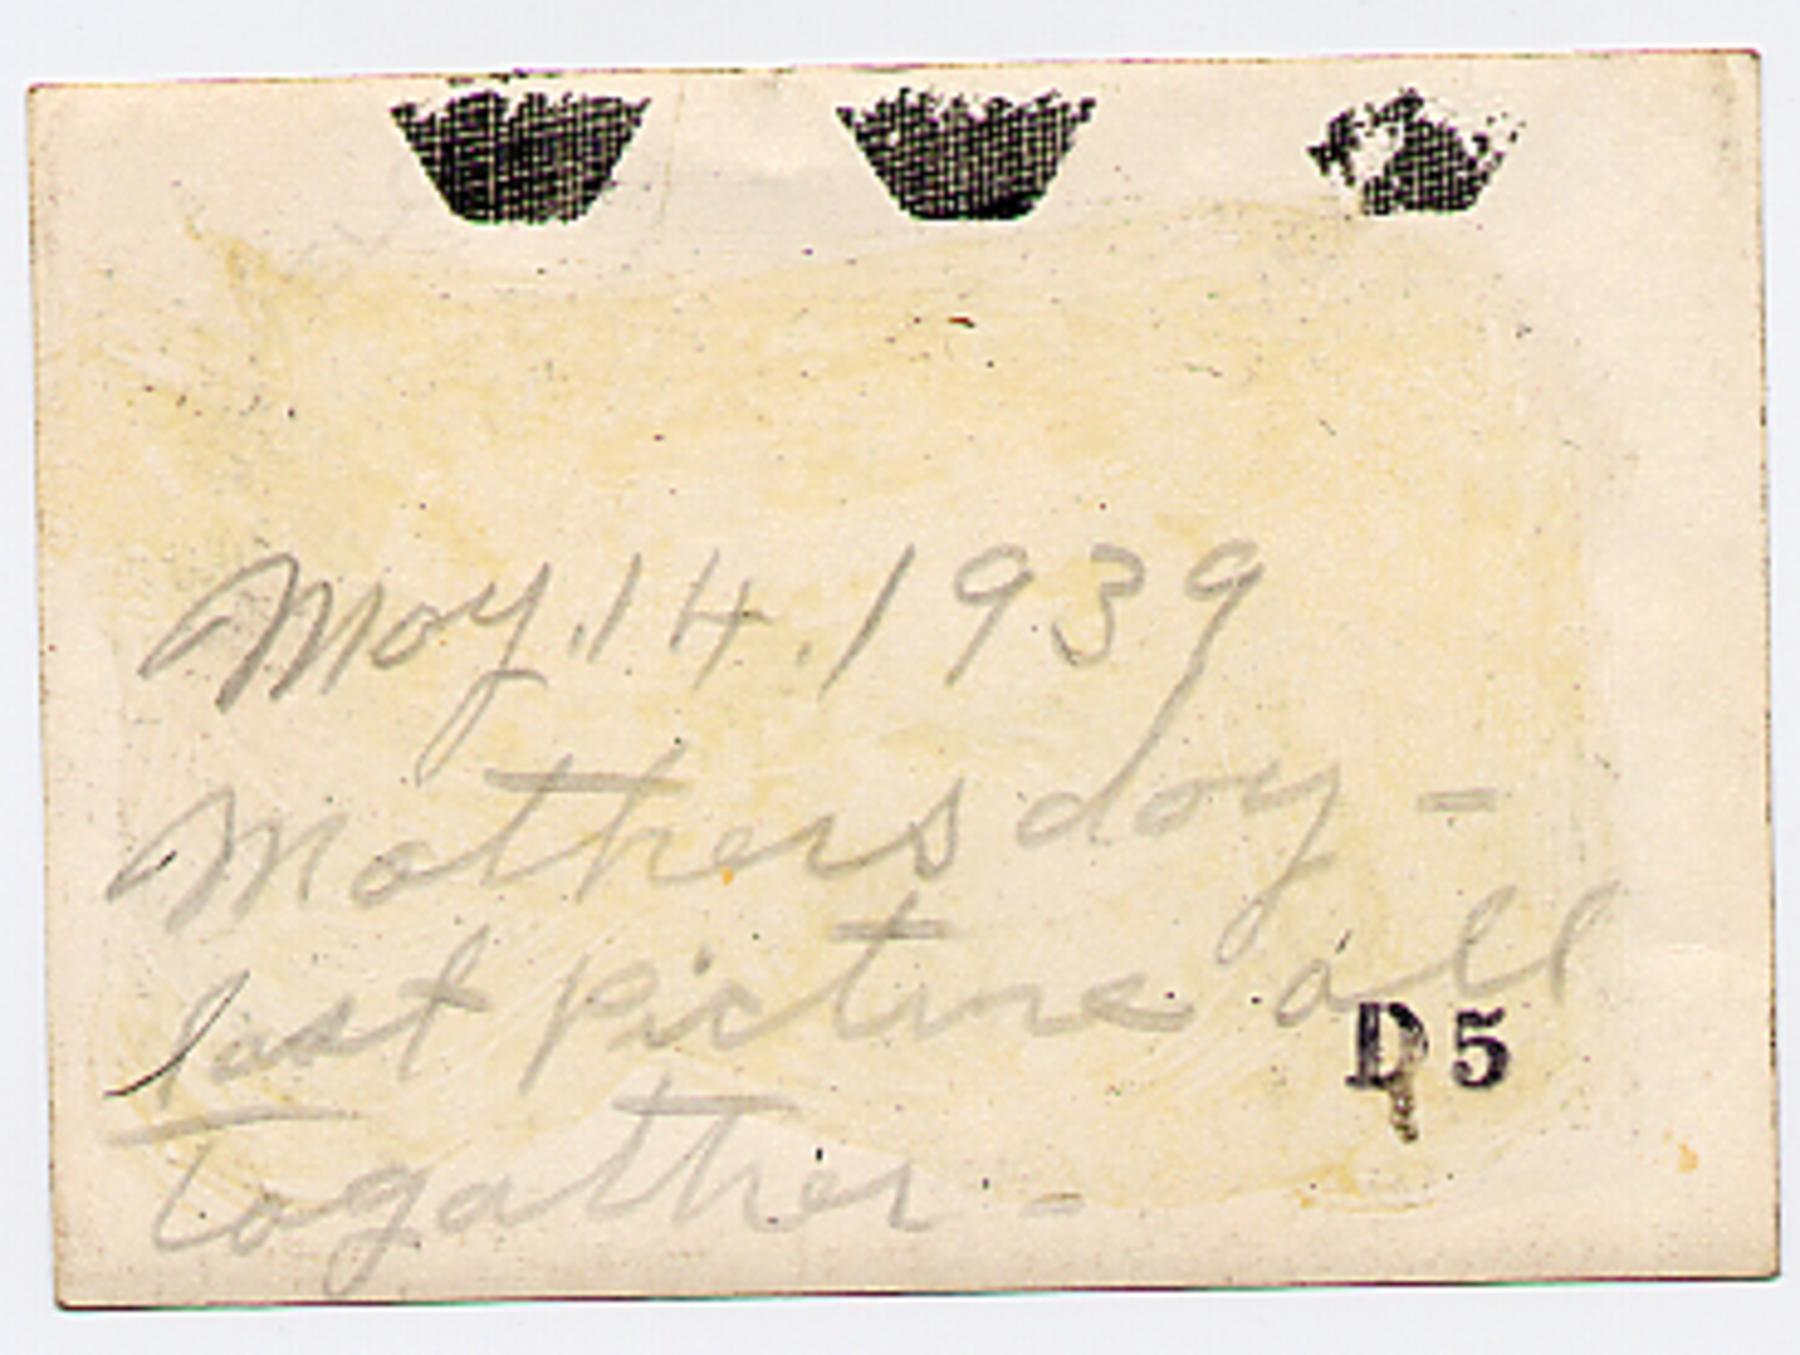 May. 14. 1939
Mothers day -
last picture all
D5
togather -